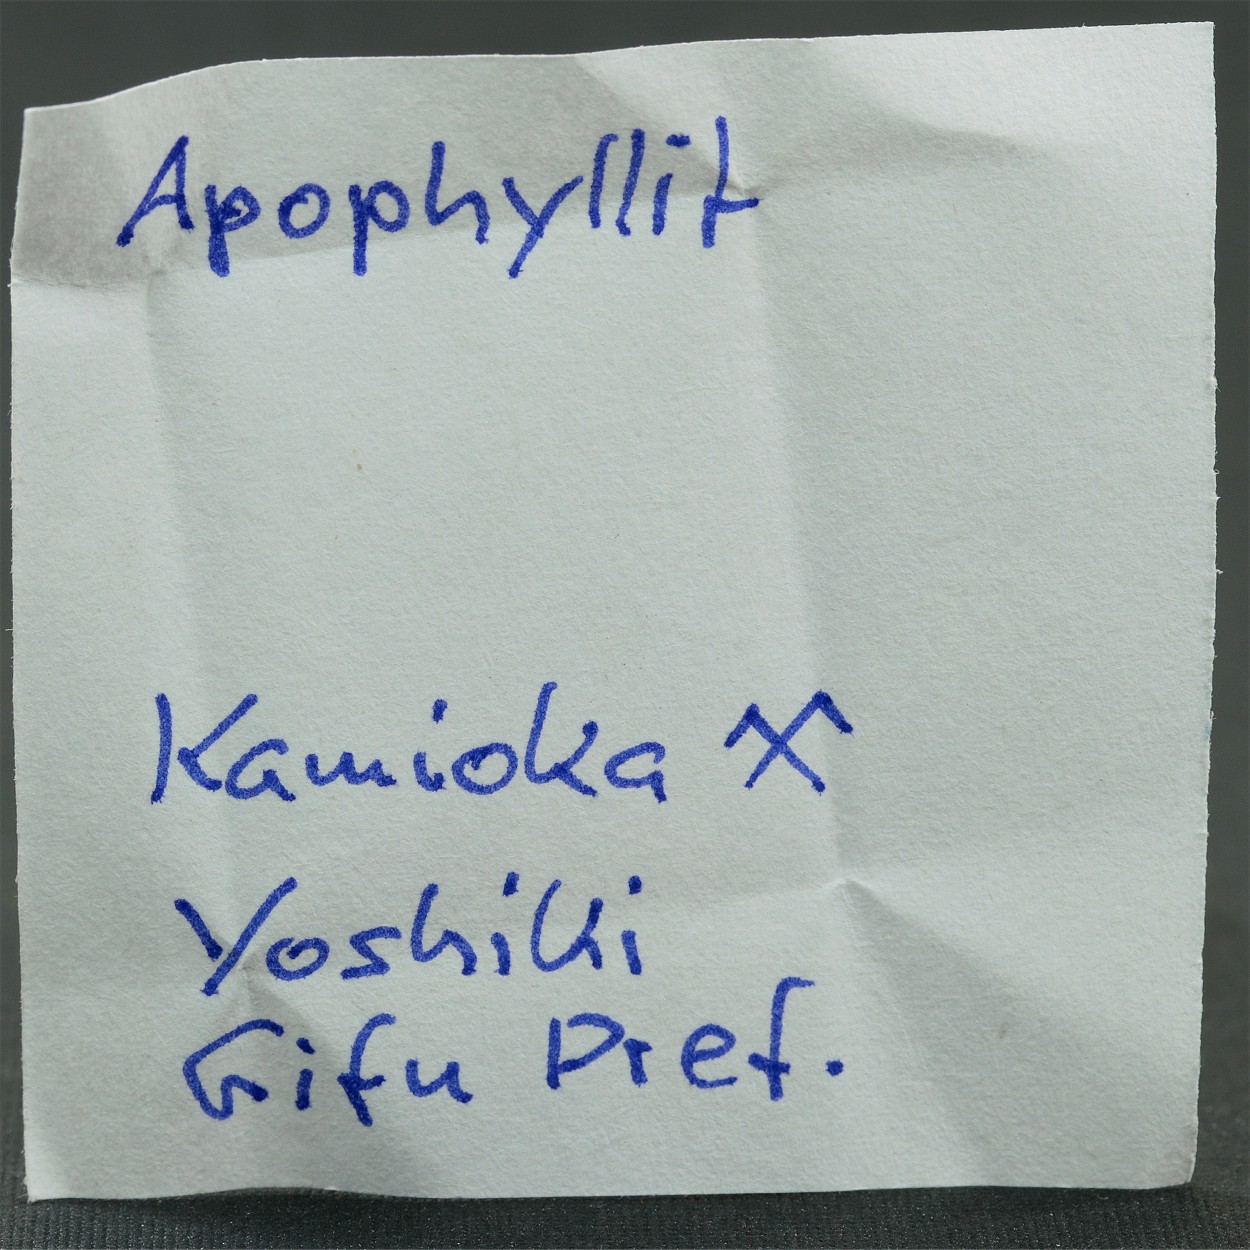 Apophyllit
Kamioka ⚒
Yoshiki
Gifu Pref.